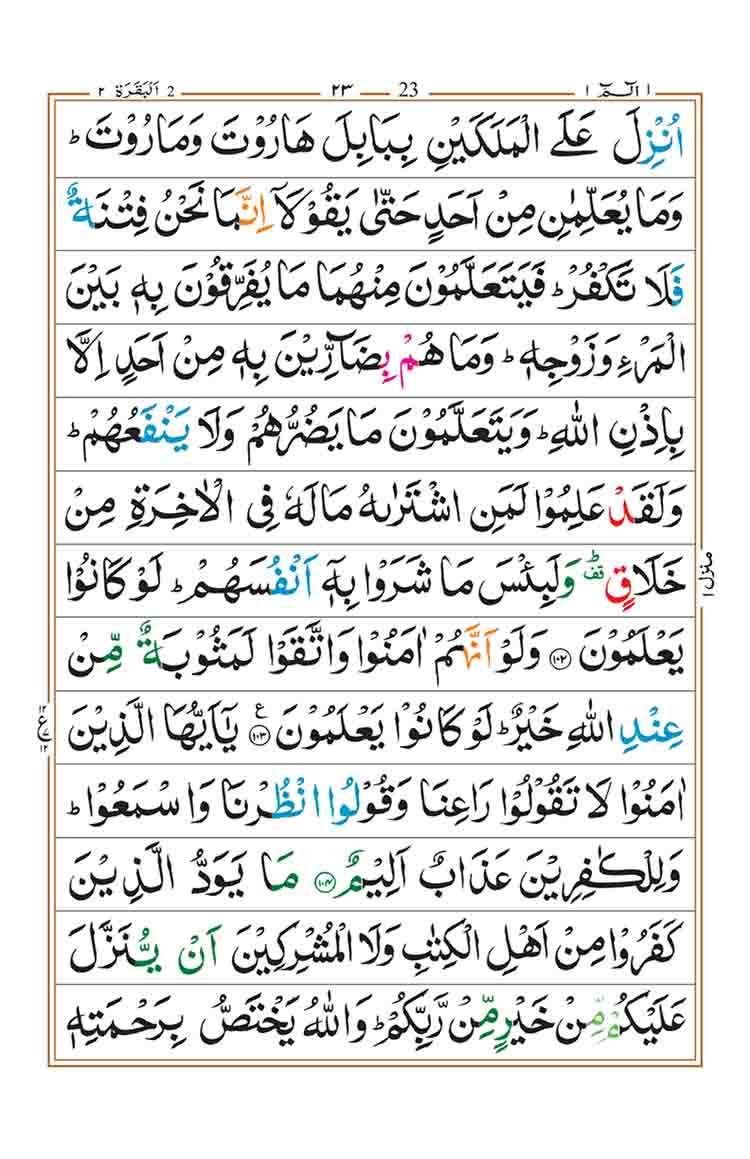 الٓـمّٓ ١ ٢٣ 23 اَلْبَقَرَة ٢ 2
اُنْزِلَ عَلَى الْمَلَكَيْنِ بِبَابِلَ هَارُوْتَ وَمَارُوْتَ ؕ
وَمَا يُعَلِّمٰنِ مِنْ اَحَدٍ حَتّٰى يَقُوْلَاۤ اِنَّمَا نَحْنُ فِتْنَةٌ
فَلَا تَكْفُرْ ؕ فَيَتَعَلَّمُوْنَ مِنْهُمَا مَا يُفَرِّقُوْنَ بِهٖ بَيْنَ
الْمَرْءِ وَزَوْجِهٖ ؕ وَمَا هُمْ بِضَآرِّيْنَ بِهٖ مِنْ اَحَدٍ اِلَّا
بِاِذْنِ اللّٰهِ ؕ وَيَتَعَلَّمُوْنَ مَا يَضُرُّهُمْ وَلَا يَنْفَعُهُمْ ؕ
وَلَقَدْ عَلِمُوْا لَمَنِ اشْتَرٰىهُ مَالَهٗ فِى الْاٰخِرَةِ مِنْ
خَلَاقٍ ۛؕ وَلَبِئْسَ مَا شَرَوْا بِهٖۤ اَنْفُسَهُمْ ؕ لَوْ كَانُوْا
منزل ١
يَعْلَمُوْنَ ﴿۱۰۲﴾ وَلَوْ اَنَّهُمْ اٰمَنُوْا وَاتَّقَوْا لَمَثُوْبَةٌ مِّنْ
عِنْدِ اللّٰهِ خَيْرٌ ؕ لَوْ كَانُوْا يَعْلَمُوْنَ ﴿۱۰۳﴾ ع يٰۤاَيُّهَا الَّذِيْنَ
١٢ ع ٧ ١٢
اٰمَنُوْا لَا تَقُوْلُوْا رَاعِنَا وَقُوْلُوا انْظُرْنَا وَاسْمَعُوْا ؕ
وَلِلْكٰفِرِيْنَ عَذَابٌ اَلِيْمٌ ﴿۱۰۴﴾ مَا يَوَدُّ الَّذِيْنَ
كَفَرُوْا مِنْ اَهْلِ الْكِتٰبِ وَلَا الْمُشْرِكِيْنَ اَنْ يُّنَزَّلَ
عَلَيْكُمْ مِّنْ خَيْرٍ مِّنْ رَّبِّكُمْ ؕ وَاللّٰهُ يَخْتَصُّ بِرَحْمَتِهٖ